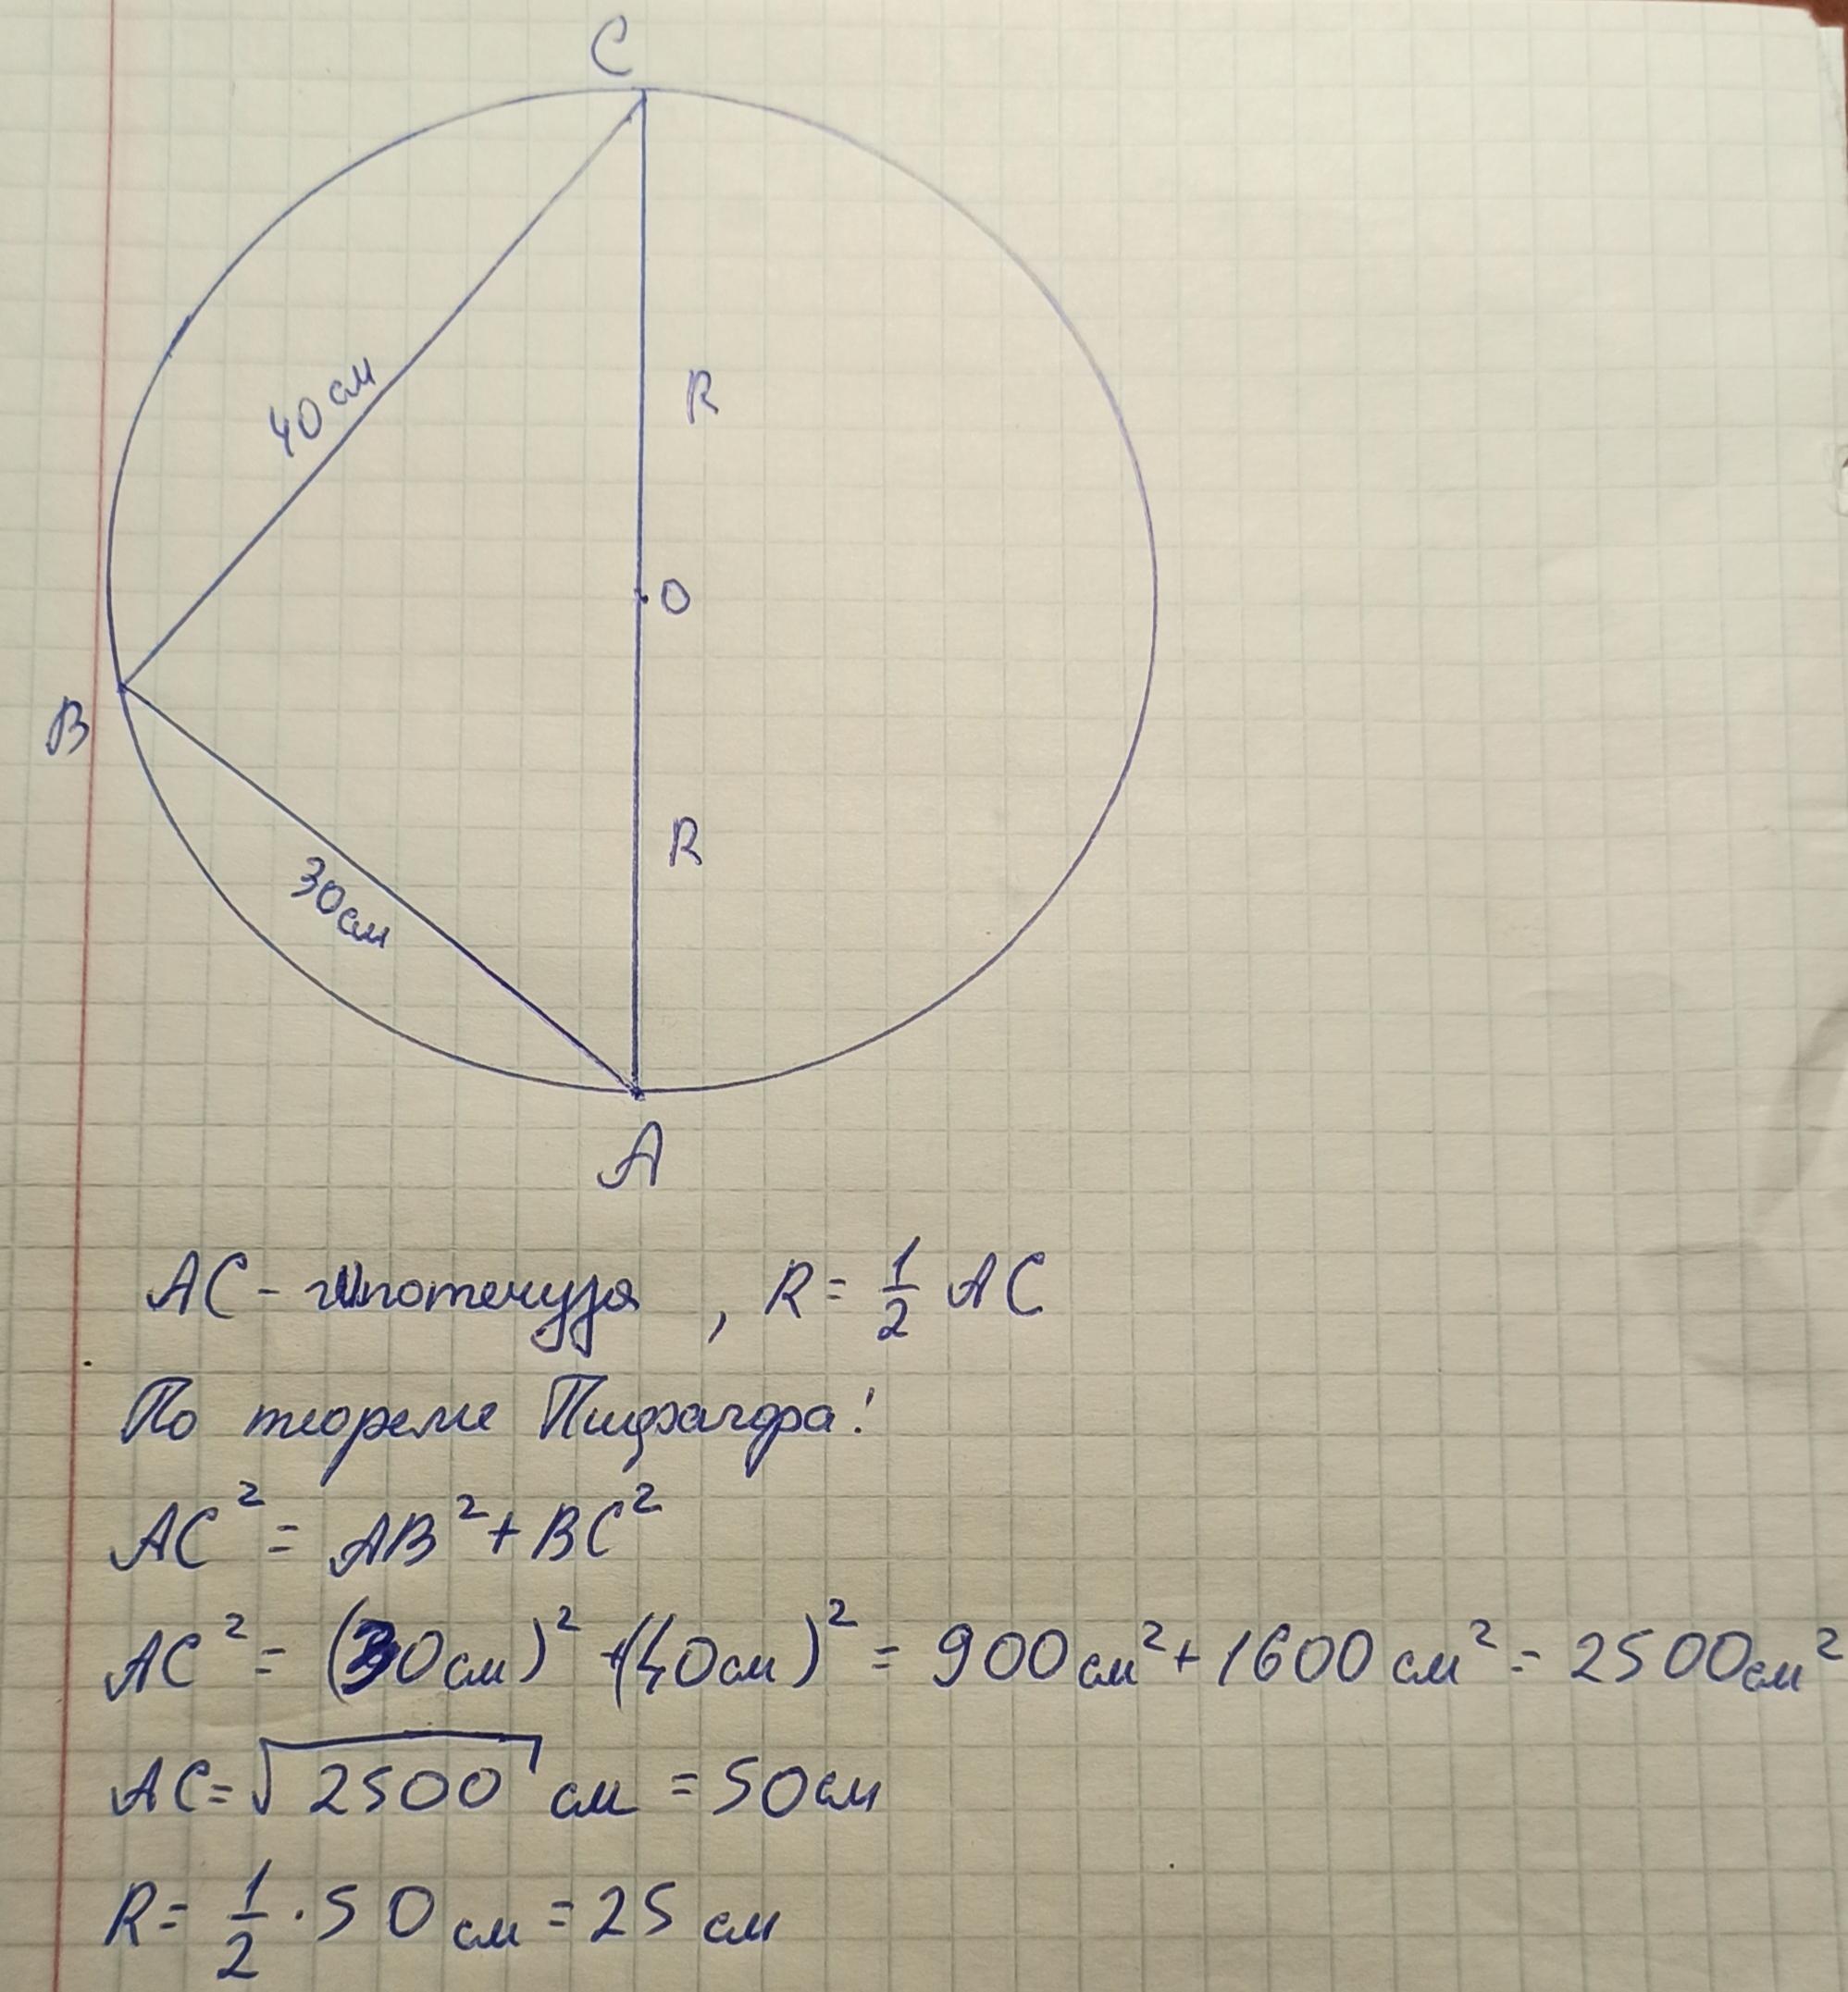 C
40 см
R
O
B
R
30см
A
AC - гипотенуза , R = 1/2 AC
По теореме Пифагора:
AC² = AB² + BC²
AC² = (30см)² + (40см)² = 900см² + 1600см² = 2500см²
AC = √2500 см = 50см
R = 1/2 · 50 см = 25 см